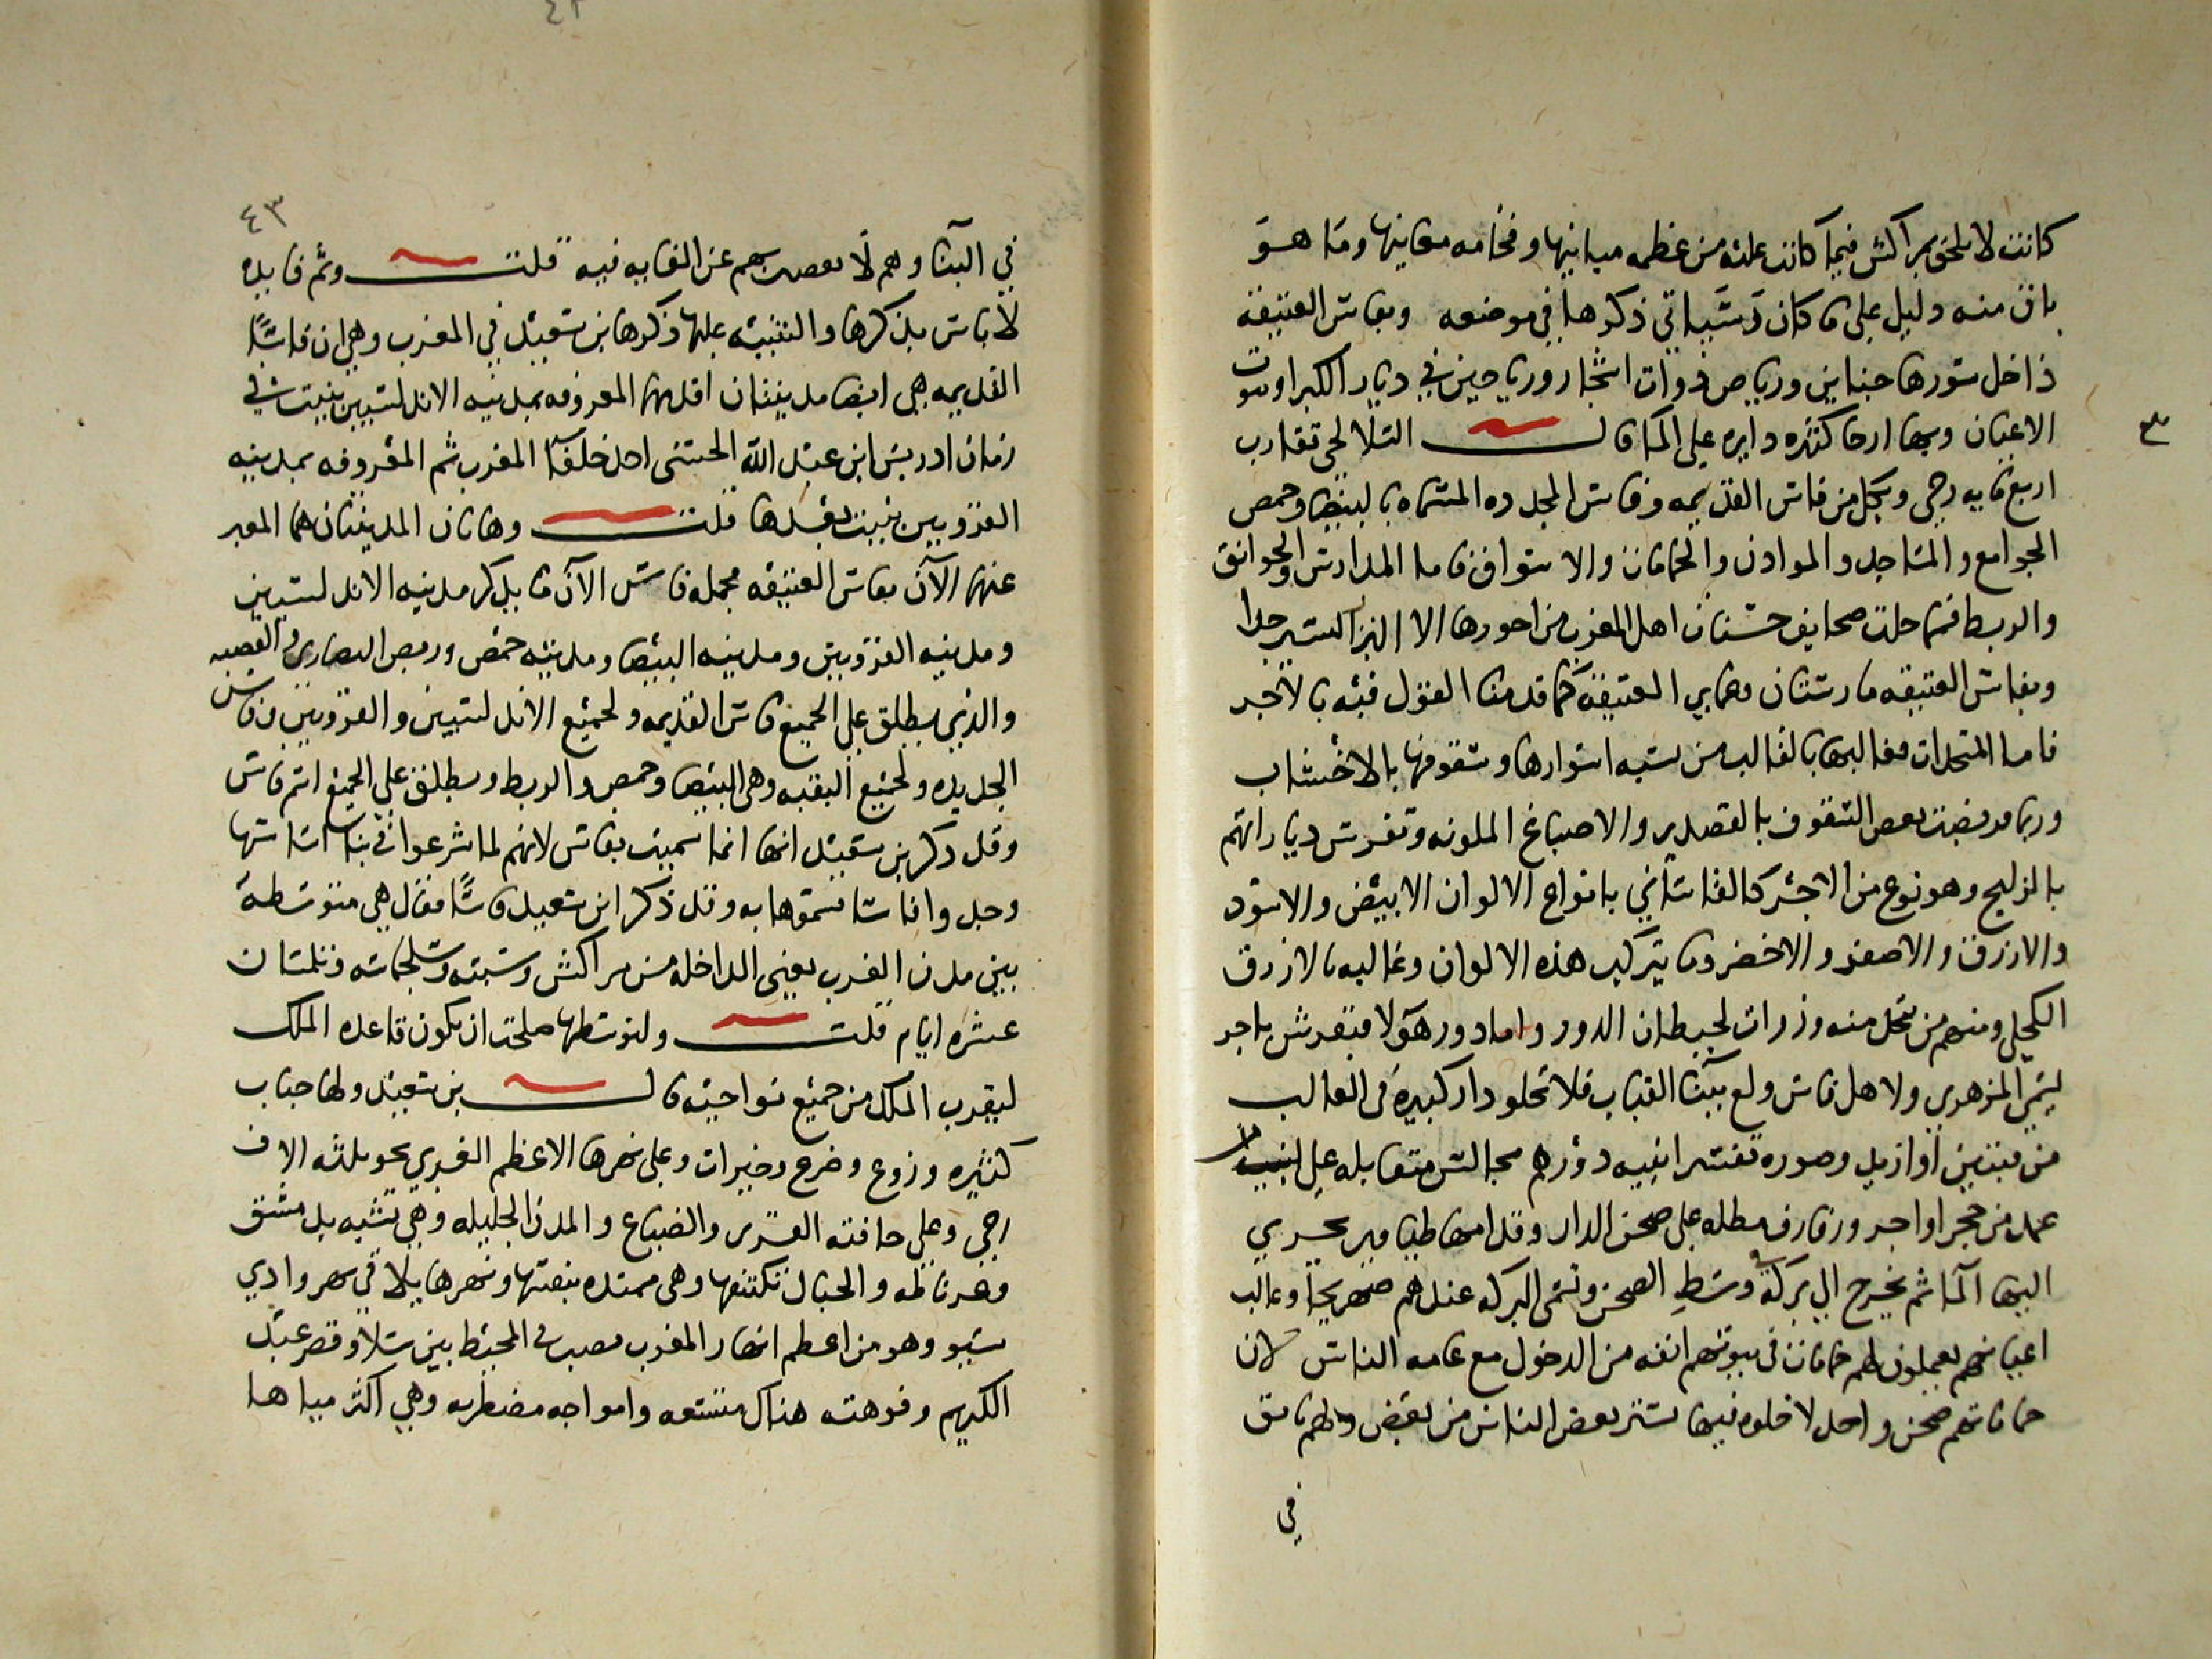 كانت لا تلحق بمراكش فيما كانت عليه من عظمه مبانيها وفخامه مغانيها وما هو
باق منه دليل على ما كان وسياتي ذكرها في موضعه وبفاس العتيقه
داخل سورها جناين ورياض ذوات اشجار ورياحين في ديار الكبرا وبيوت
٣
الاعيان وبها ارحا كثيره دايره على الما قال السلالحي تقارب
اربع مايه رحى وبكل من فاس القديمه وفاس الجديده المسماه بالبيضا وحمص
الجوامع والمساجد والموادن والحمامات والاسواق فاما المدارس والخوانق
والربط فمما خلت صحايف حسنات اهل المغرب من اجورها الا النزر اليسير جدا
وبفاس العتيقه مارستان ومباني العتيقة كما قدمنا القول فيه بالاجر
فاما المتجدات فغالبها بالقالب من شبه اسوارها وسقوفها بالاخشاب
وربما بعض السقوف بالقصدير والاصباغ الملونه وتفرش دياراتهم
بالزليج وهو نوع من الاجر كالقاشاني بانواع الالوان الابيض والاسود
والازرق والاصفر والاخضر وما يتركب هذه الالوان وغالبه الازرق
الكحلي ومنهم من يتخذ منه وزرات لحيطان الدور واما دور هولا فتفرش باجر
يسمى المزهري ولاهل فاس ولع ببنا القباب فلا تخلو دار كبيره في الغالب
من قبتين او ازيد وصوره تفسير ابنيه دورهم مجالس متقابله على
عمد من حجر او اجر ورفارف مطله على صحن الدار وقدامها طيافير يجري
اليها الما ثم يخرج الى بركة وسط الصحن وتسمى البركه عندهم صهريجا وغالب
اعيانهم يعملون لهم حمامات في بيوتهم انفه من الدخول مع عامه الناس لان
حماماتهم صحن واحد لا خلوه فيها تستر بعض الناس من بعض ولهم تانق
في
٤٣
في البنا وهم لا تقصر بهم عن الغايه فيه قلت وثم فايده
لا باس بذكرها والتنبيه عليها ذكرها بن سعيد في المغرب وهي ان فاسا
القديمه هي ايضا مدينتان اقدمهما المعروفه بمدينه الاندلسيين بنيت في
زمان ادريس ابن عبد الله الحسني احد خلفا المغرب ثم المعروفه بمدينه
القرويين بنيت بعدها قلت وهاتان المدينتان هما المعبر
عنهما الآن بفاس العتيقه فجمله فاس الآن ما يذكر مدينه الاندلسيين
ومدينه القرويين ومدينه البيضا ومدينه حمص وربض النصارى والقصبه
والذي يطلق على الجميع فاس القديمه ولجميع الاندلسيين والقرويين وفاس
الجديده ولجميع البقيه وهي البيضا وحمص والربط ويطلق على الجميع اسم فاس
وقد ذكر بن سعيد انها انما سميت بفاس لانهم لما شرعوا في بنا اساسها
وجدوا فاسا فسموها به وقد ذكر ابن سعيد فاسا فقال هي متوسطه
بين مدن الغرب يعني الداخله من مراكش وسبته وسجلماسه وتلمسان
عشره ايام قلت ولتوسطها صلحت ان يكون قاعده الملك
ليقرب الملك من جميع نواحيه قال بن سعيد ولها جناب
كثيره وزروع وضرع وخيرات وعلى نهرها الاعظم الغربي نحو ثلثه الاف
رحى وعلى حافته القرى والضياع والمدن الجليله وهي تشبه بدمشق
وغرناطه والجبال تكتنفها وهي ممتده بنفسها ونهرها يلاقي نهر وادي
سبو وهو من اعظم انهار المغرب مصب في المحيط بين سلا وقصر عبد
الكريم وفوهته هناك متسعه وامواجه مضطربه وهي اكثر مياها